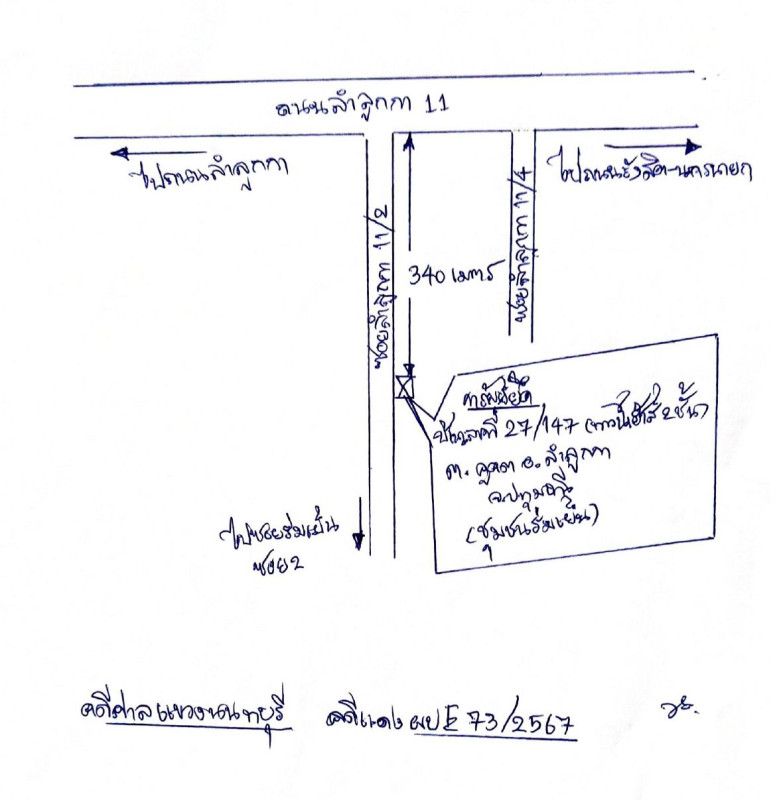 ถนนลำลูกกา 11
ไปถนนลำลูกกา
ไปถนนรังสิต-นครนายก
ซอยลำลูกกา 11/2
340 เมตร
ซอยลำลูกกา 11/4
ทรัพย์ยึด
บ้านเลขที่ 27/147 (ทาวน์เฮ้าส์ 2 ชั้น)
ต. คูคต อ. ลำลูกกา
จ.ปทุมธานี
(ชุมชนร่มเย็น)
ไปซอยร่มเย็น
ซอย 2
คดีศาลแขวงนนทบุรี คดีแดง ผบE 73/2567